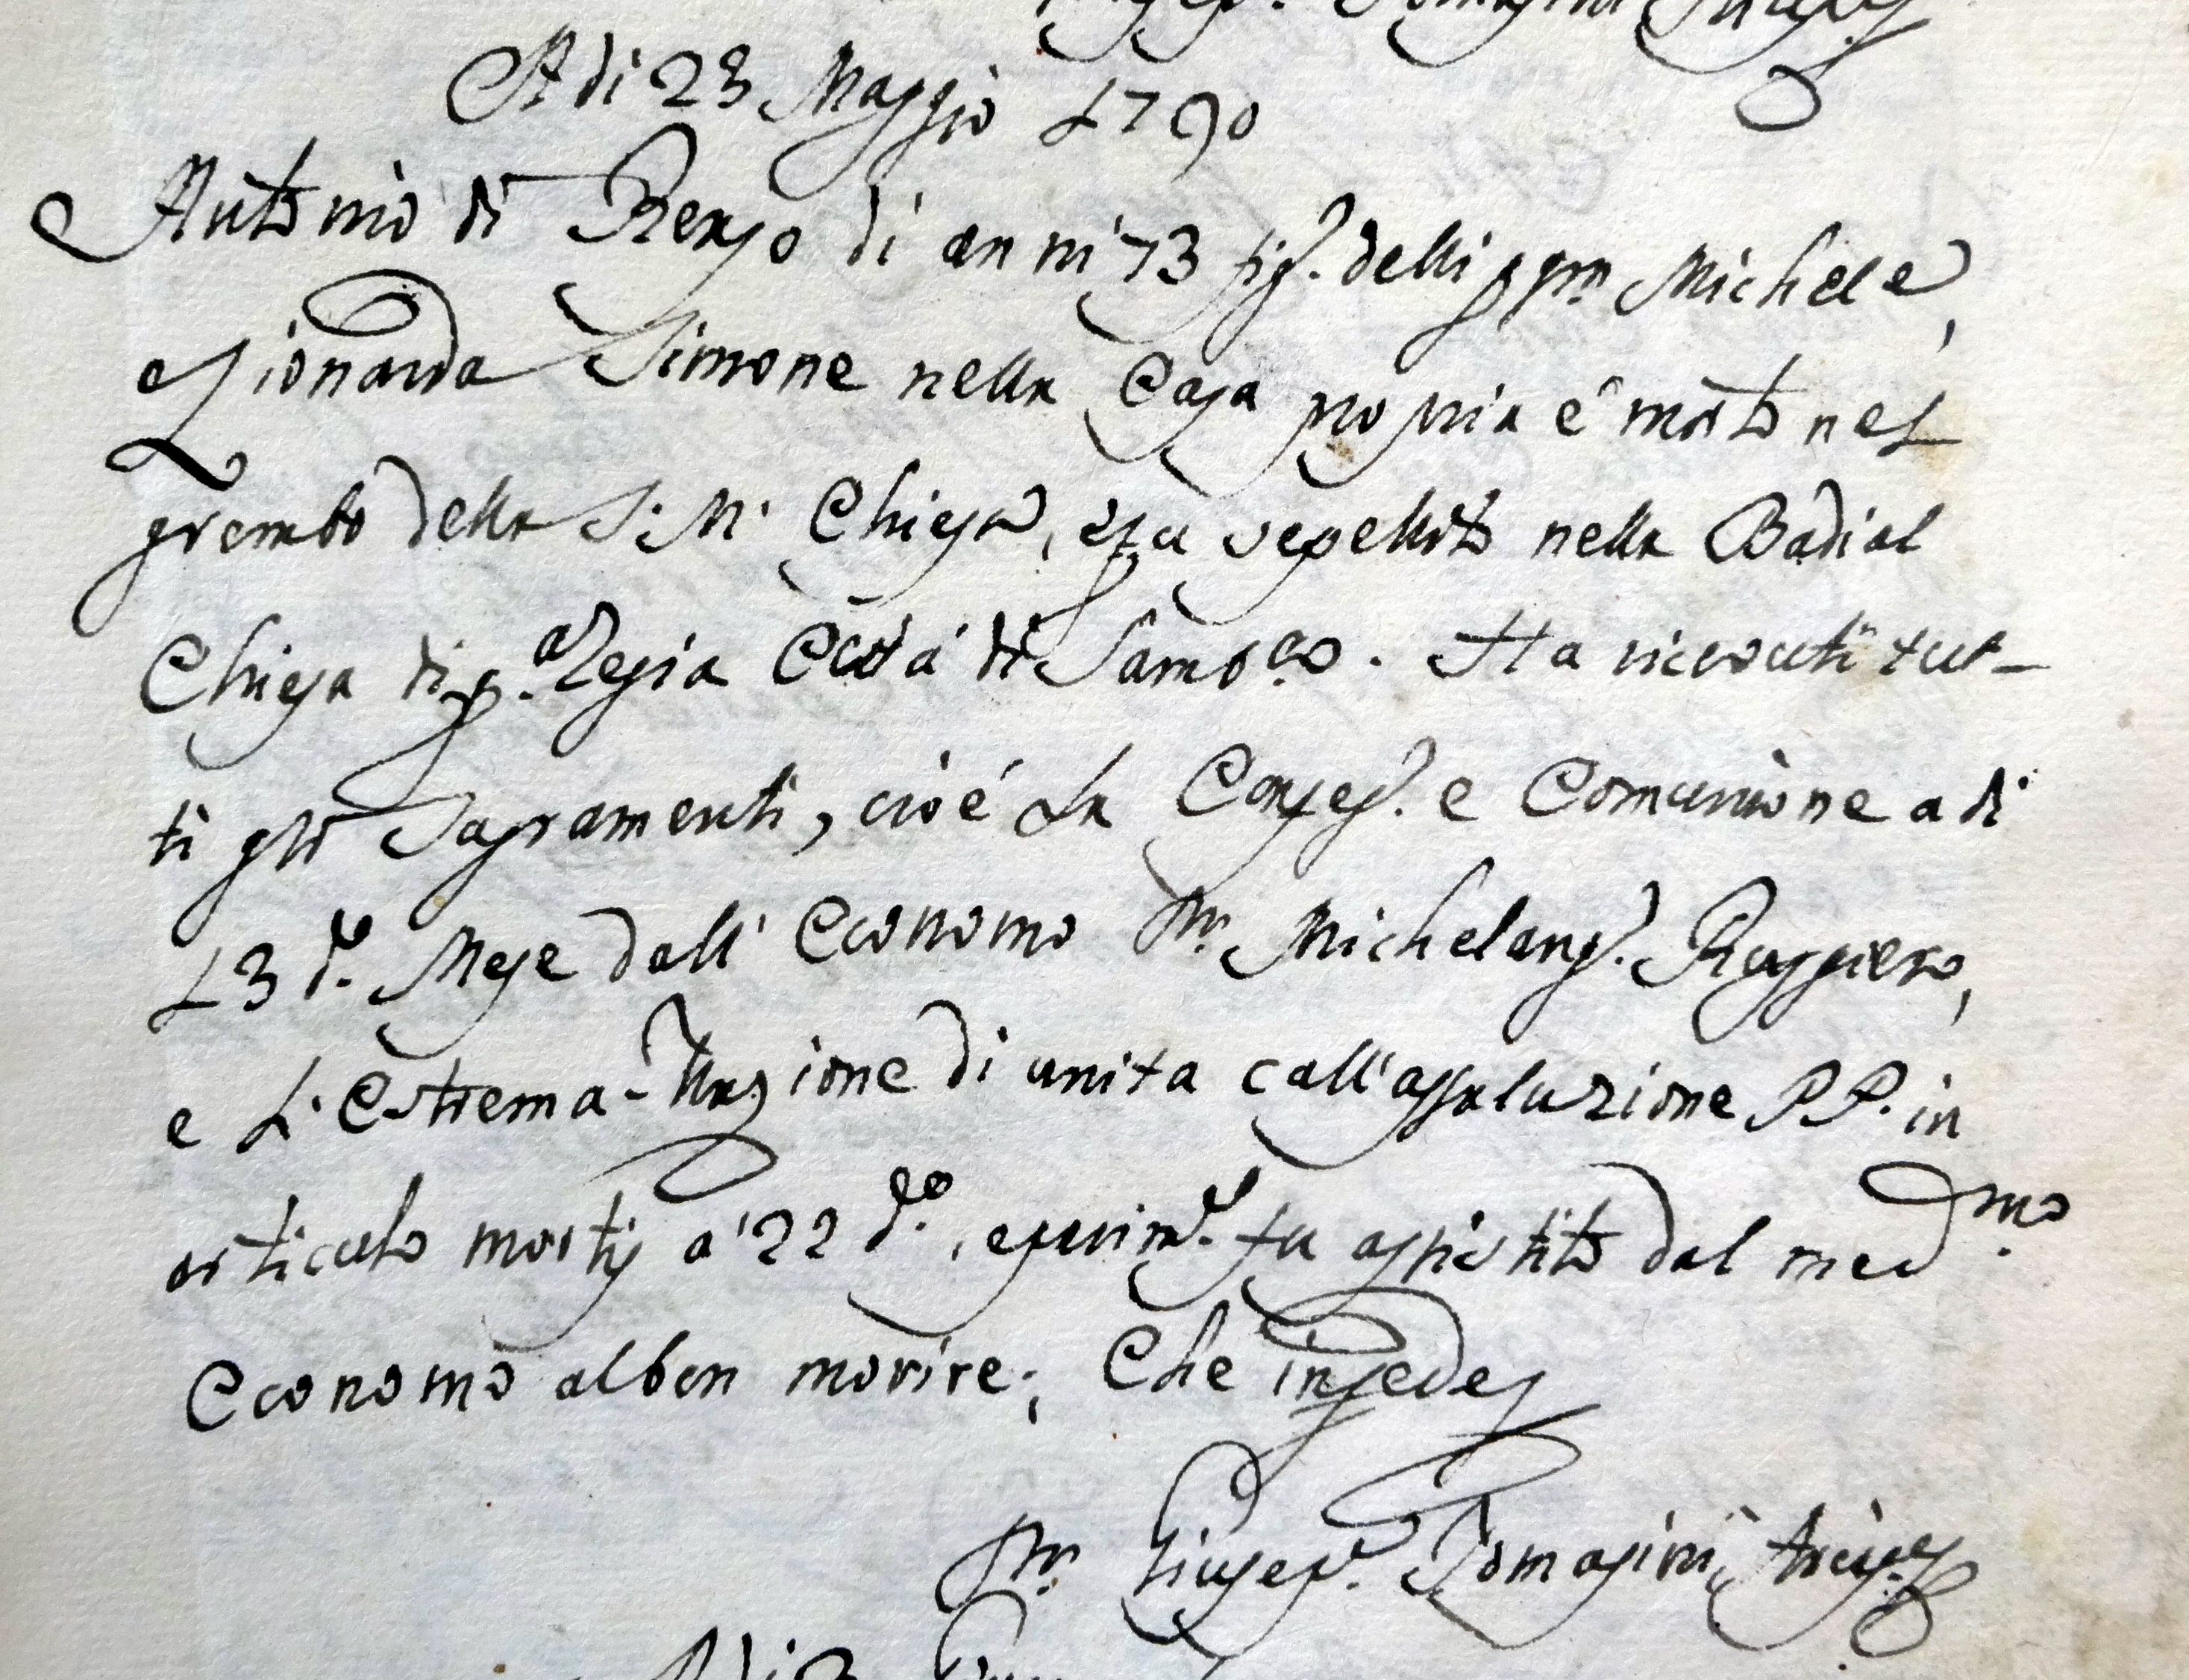 A di 23 Maggio 1790
Antonio di Renzo di anni 73 fig. delli qqm Michele,
e Lionarda Simone nella Casa propria é morto nel
grembo della S. M. Chiesa, e fu sepellito nella Badial
Chiesa di q.a Regia Città di Sambco. Ha ricevuti tut-
ti gli Sagramenti, cioé La Confes. e Comunione a di
13 d.o Mese dall' Economo Dn Michelang. Ruggiero,
e L'Estrema-Unzione di unita coll'assoluzione PP. in
articulo mortis a' 22 d.o, e fu assistito dal medmo.
Economo al ben morire; Che in fede
Dn Giusep. Tomasini Arcip.
A di